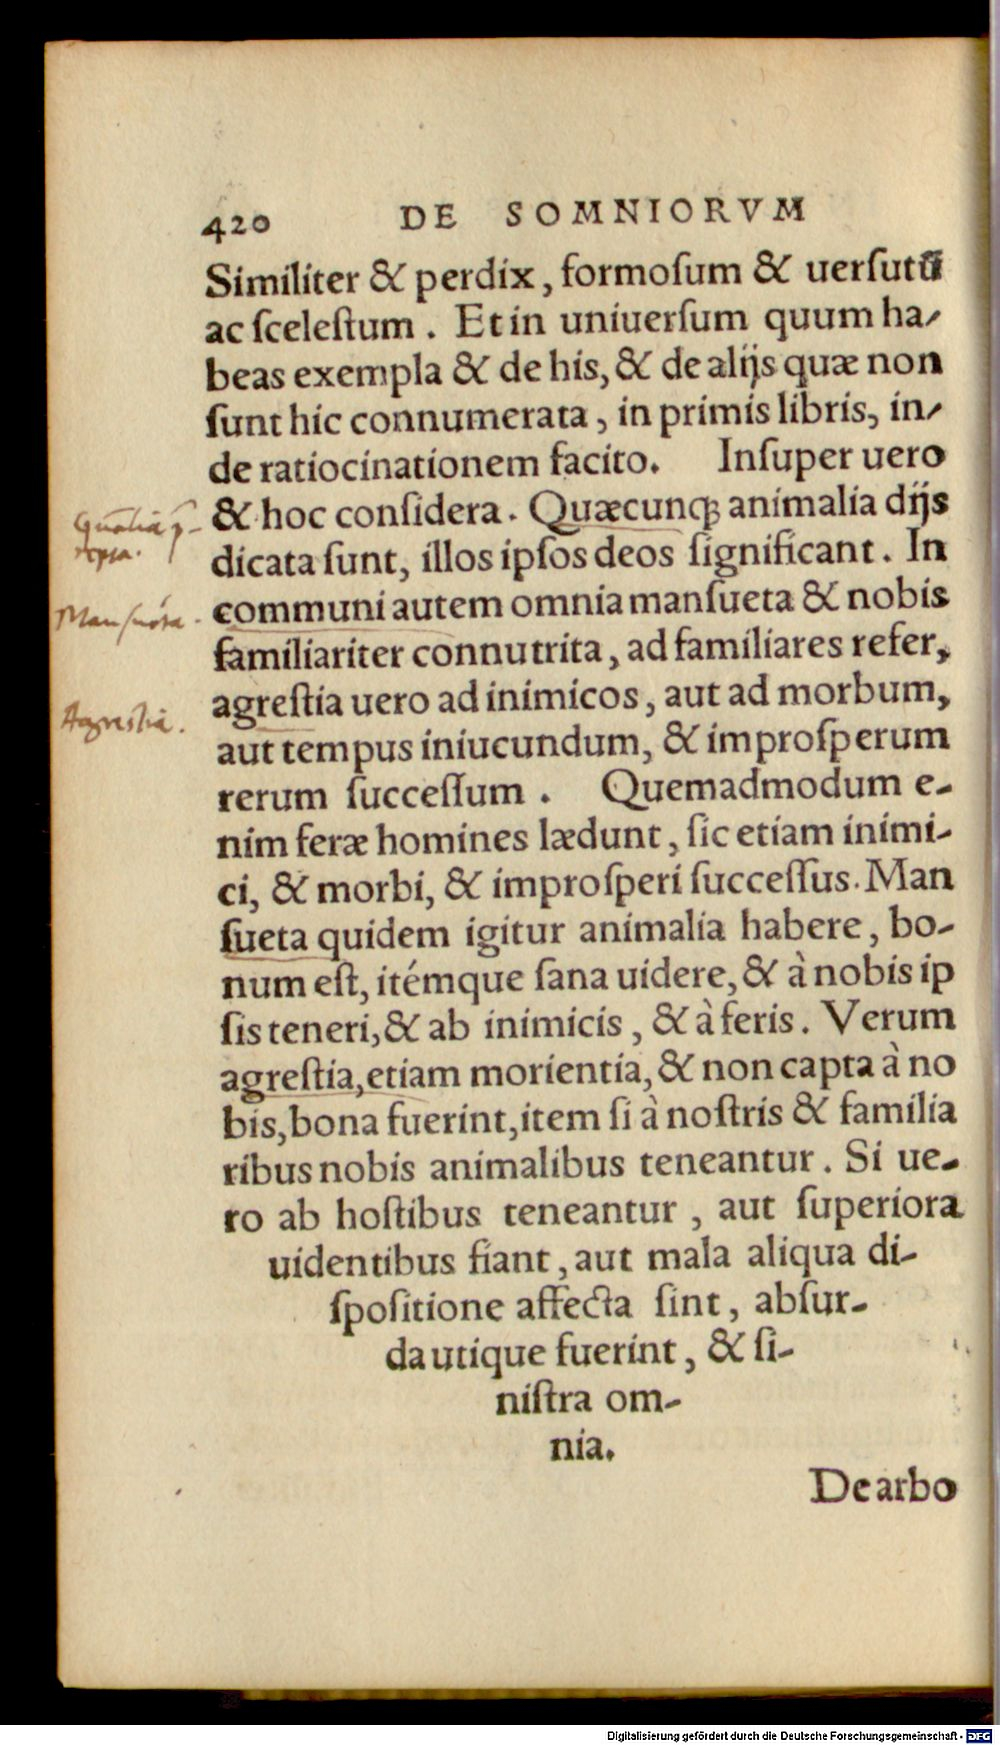 420 DE SOMNIORVM
Similiter & perdix, formoſum & uerſutũ
ac ſceleſtum. Et in uniuerſum quum ha-
beas exempla & de his, & de alijs quæ non
ſunt hic connumerata, in primis libris, in-
de ratiocinationem facito. Inſuper uero
& hoc conſidera. Quæcunqꝫ animalia dijs
dicata ſunt, illos ipſos deos ſignificant. In
Mansueta.
communi autem omnia manſueta & nobis
familiariter connutrita, ad familiares refer,
Agrestia.
agreſtia uero ad inimicos, aut ad morbum,
aut tempus iniucundum, & improſperum
rerum ſucceſſum. Quemadmodum e-
nim feræ homines lædunt, ſic etiam inimi-
ci, & morbi, & improſperi ſucceſſus. Man
ſueta quidem igitur animalia habere, bo-
num eſt, itémque ſana uidere, & à nobis ip
ſis teneri, & ab inimicis, & à feris. Verum
agreſtia, etiam morientia, & non capta à no
bis, bona fuerint, item ſi à noſtris & familia
ribus nobis animalibus teneantur. Si ue-
ro ab hoſtibus teneantur, aut ſuperiora
uidentibus fiant, aut mala aliqua di-
ſpoſitione affecta ſint, abſur-
da utique fuerint, & ſi-
niſtra om-
nia.
De arbo
Digitalisierung gefördert durch die Deutsche Forschungsgemeinschaft - DFG